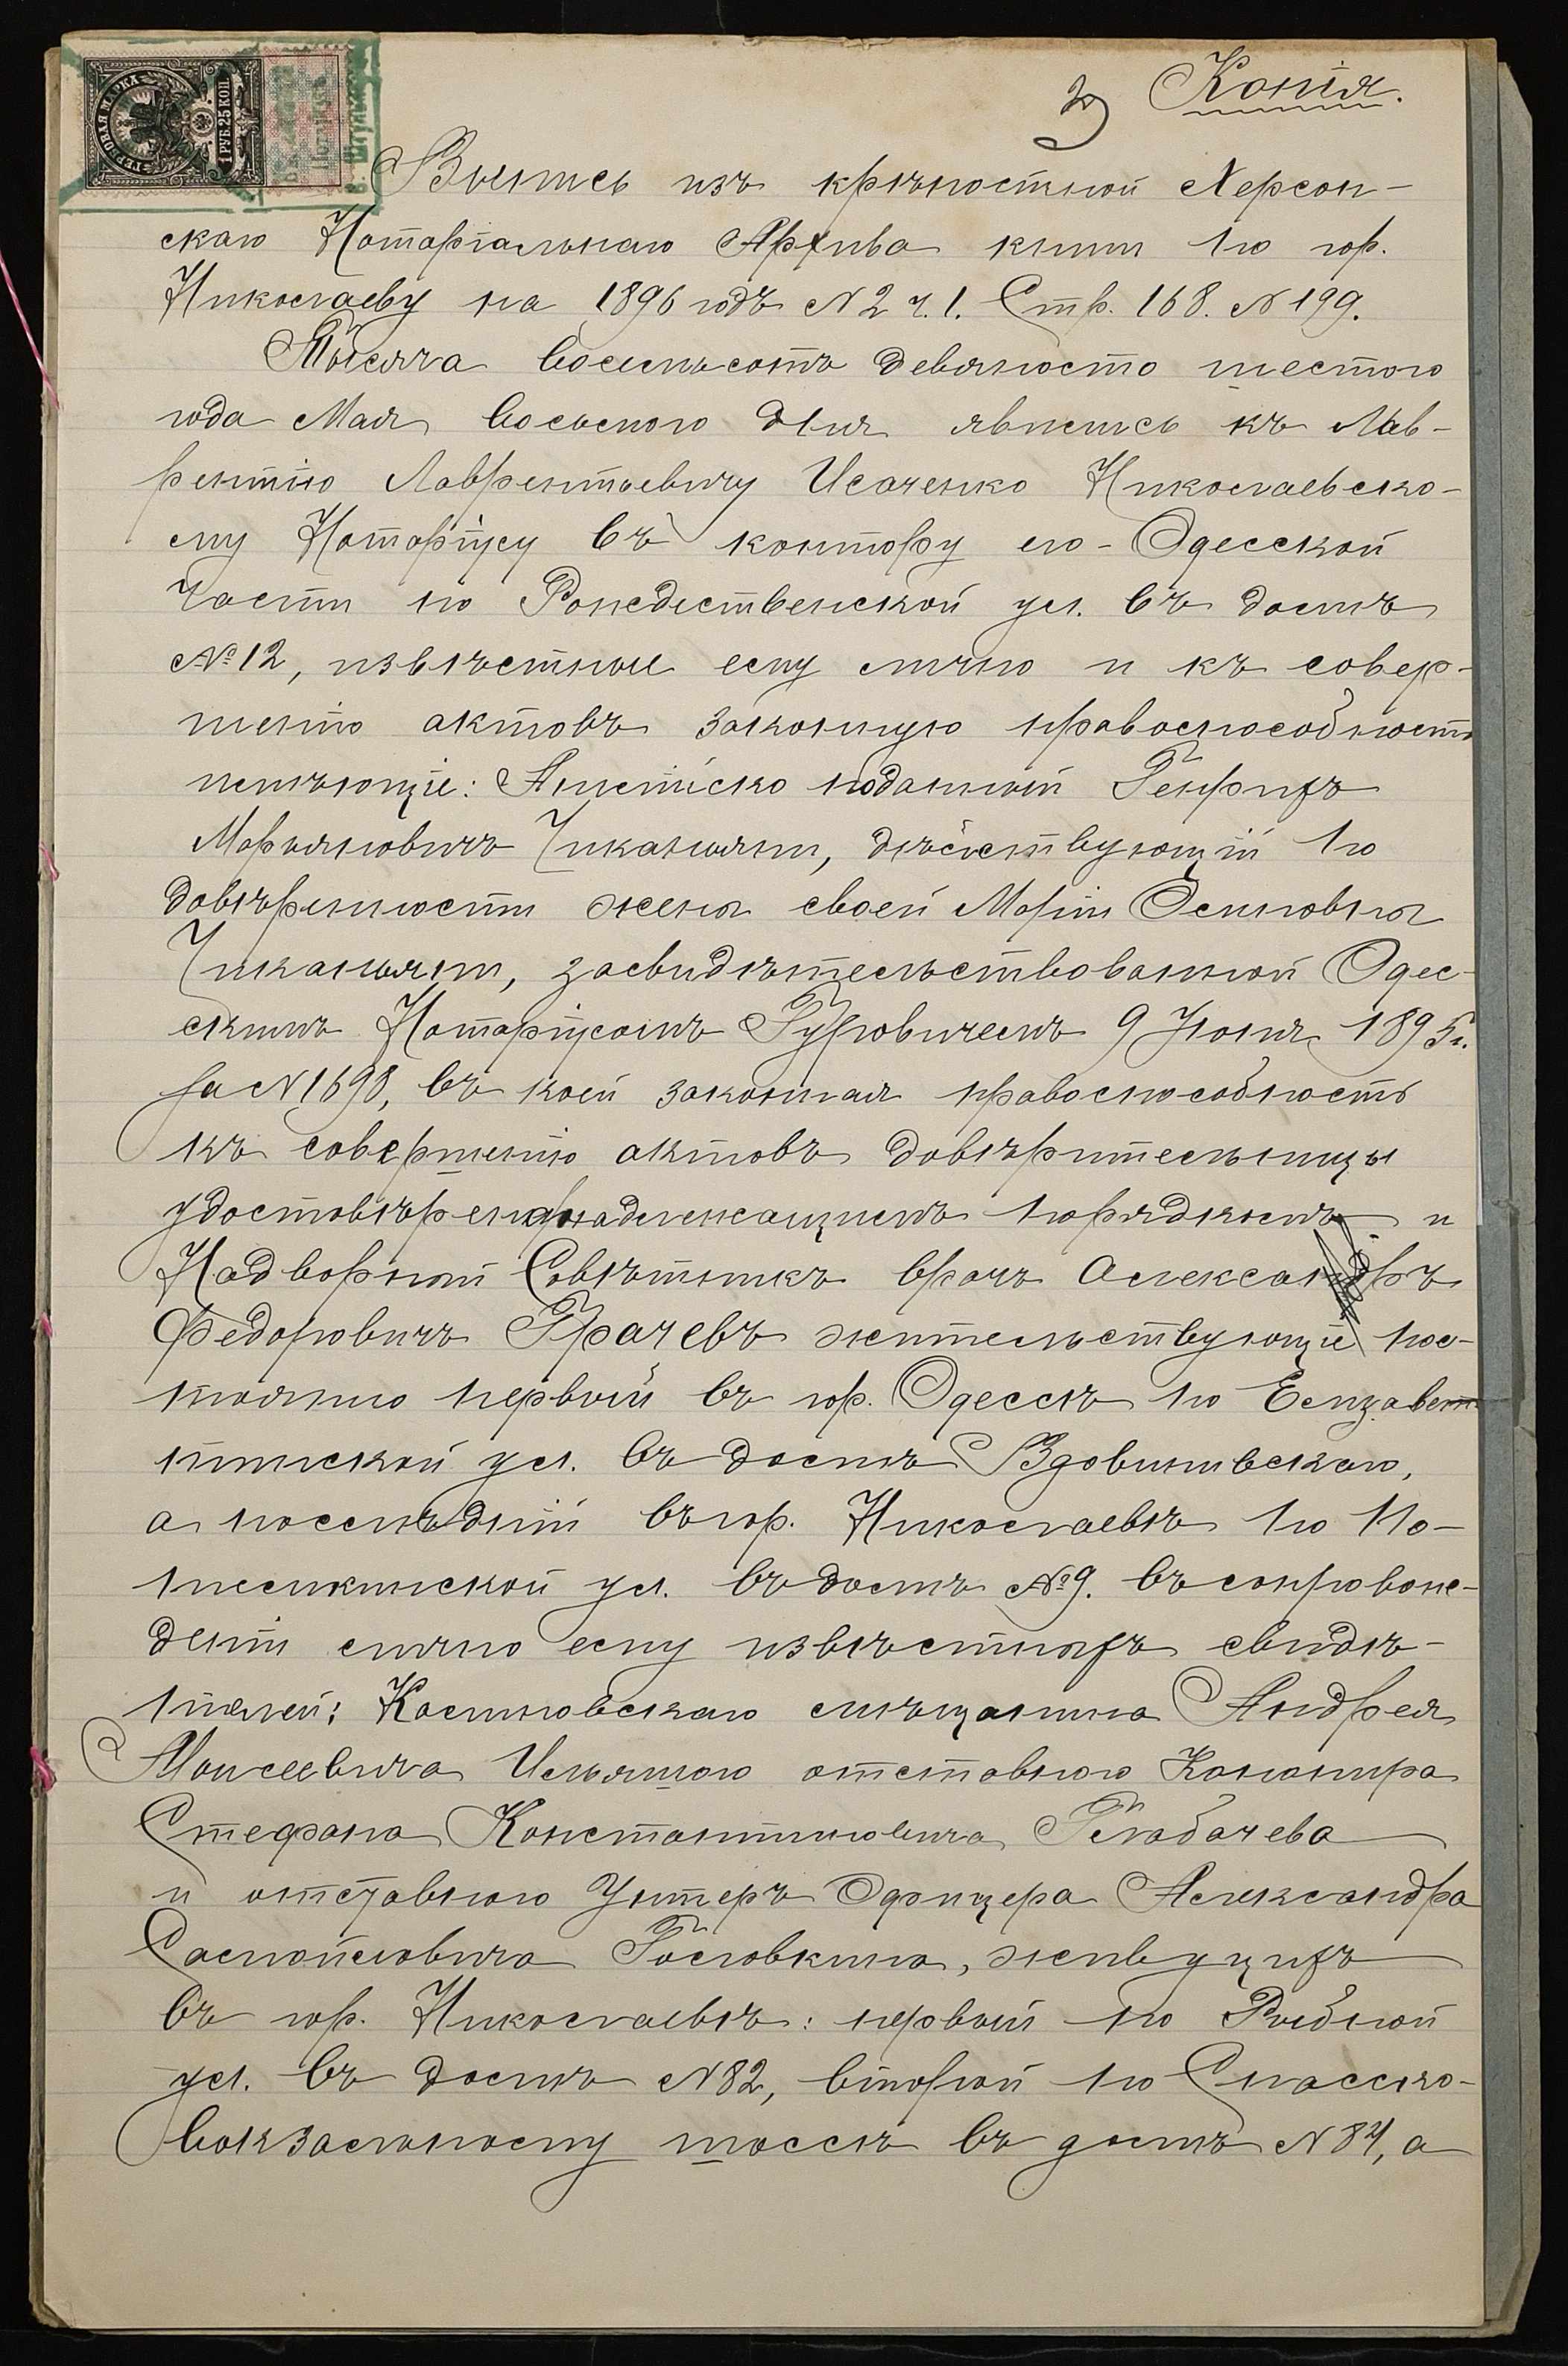 Копія.
ГЕРБОВАЯ МАРКА
1 РУБ. 25 КОП.
Выпись изъ крѣпостной Херсон-
скаго Нотаріальнаго Архива книги по гор.
Николаеву на 1896 годъ N 2 ч. 1. Стр. 168. N 199.
Тысяча восемьсотъ девяносто шестого
года Мая восьмого дня явились къ Лав-
рентію Лаврентьевичу Исаченко Николаевско-
му Нотаріусу въ контору его - Одесской
части по Рождественской ул. въ домѣ
№ 12, извѣстные ему лично и къ совер-
шенію актовъ законную правоспособность
имѣющіе: Англійско подданный Генрихъ
Марьяновичъ Чиканьяни, дѣйствующій по
довѣренности жены своей Маріи Осиповны
Чиканьяни, засвидѣтельствованной Одес-
скимъ Нотаріусомъ Гуровичемъ 9 Іюня 1895 г.
за N 1698, въ коей законная правоспособность
къ совершенію актовъ довѣрительницы
удостовѣрена надлежащимъ порядкомъ и
Надворный Совѣтникъ врачъ Александръ
Федоровичъ Грачевъ жительствующіе пос-
тоянно первый въ гор. Одессѣ по Елизавет-
нинской ул. въ домѣ Вдовишевскаго,
а послѣдній въ гор. Николаевѣ по По-
темкинской ул. въ домѣ № 9. въ сопровож-
деніи лично ему извѣстныхъ свидѣ-
телей: Костповскаго мѣщанина Андрея
Моисеевича Ильяшого отставного Канонира
Стефана Константиновича Глабачева
и отставного Унтеръ Офицера Александра
Самойловича Головкина, живущихъ
въ гор. Николаевѣ: первый по Рыбной
ул. въ домѣ N 82, второй по Спасско-
вокзальному шоссе въ домѣ N 84, а